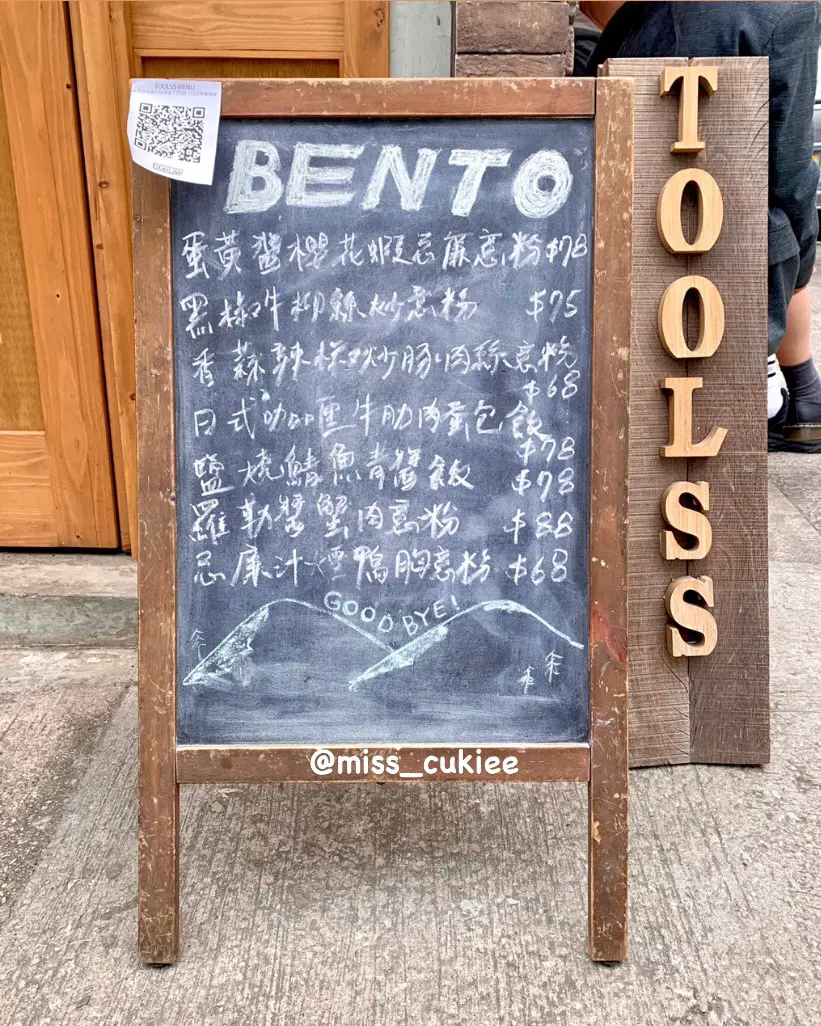 TOOLSS MENU
BENTO
蛋黃醬櫻花蝦忌廉意粉 $78
黑椒牛柳絲炒意粉 $75
香蒜辣椒炒豚肉絲意粉
$68
日式咖喱牛肋肉蛋包飯
$78
鹽燒鯖魚青醬飯 $78
羅勒醬蟹肉意粉 $88
忌廉汁煙鴨胸意粉 $68
GOOD BYE!
@miss_cukiee
TOOLSS